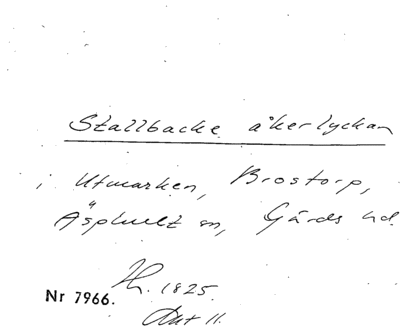 Stallbacke åkerlyckan
i Utmarken, Brostorp,
Äsphult sn, Gärds hd.
Nr 7966. Lh. 1825.
Akt 11.